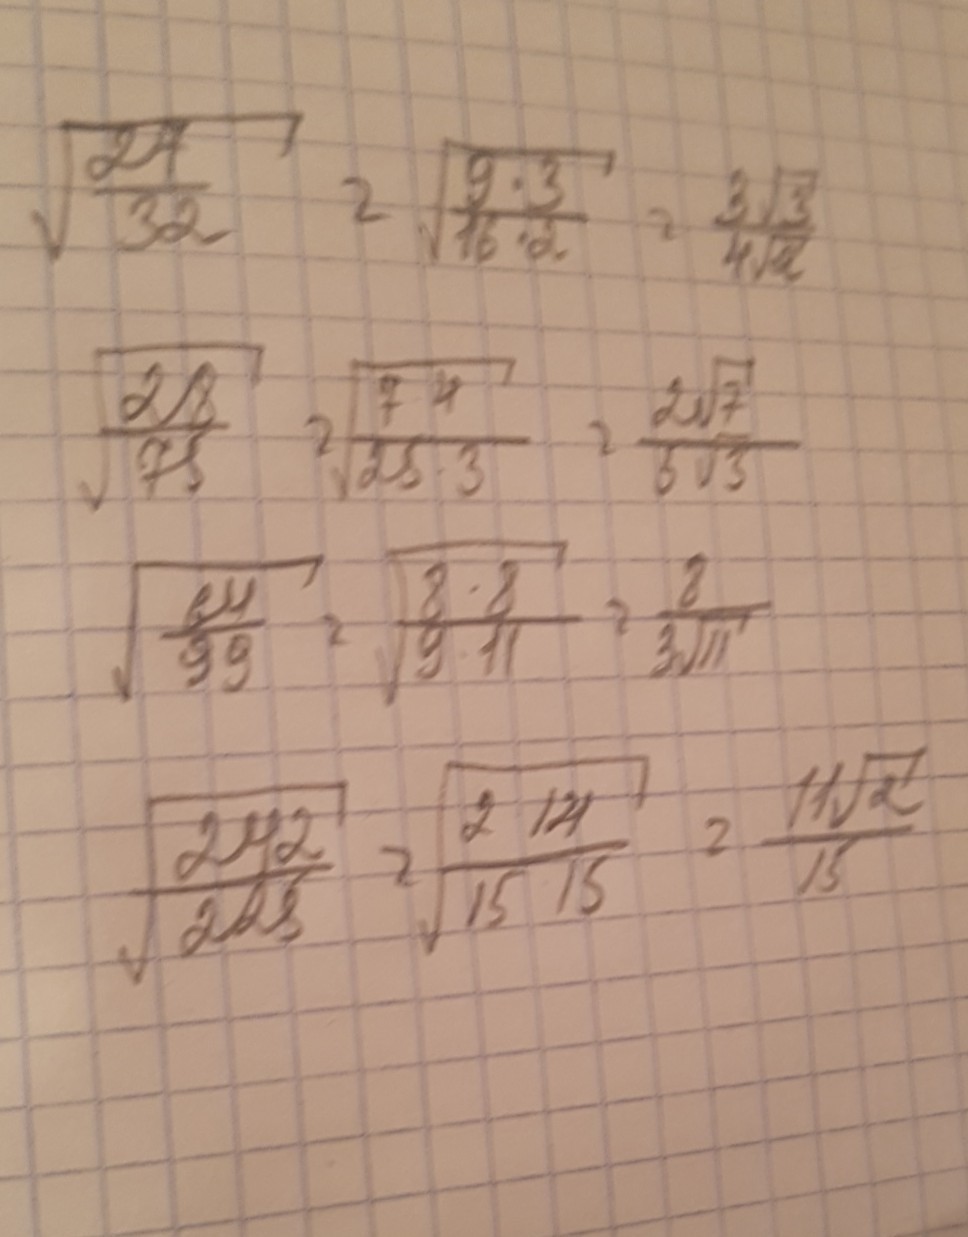 √(27/32) = √(9·3/16·2) = 3√3/4√2
√(28/75) = √(7 4/25·3) = 2√7/5√3
√(64/99) = √(8·8/9·11) = 8/3√11
√(242/225) = √(2 121/15 15) = 11√2/15